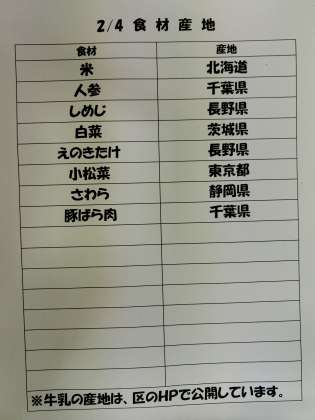 2/4 食材産地
食材 産地
米 北海道
人参 千葉県
しめじ 長野県
白菜 茨城県
えのきたけ 長野県
小松菜 東京都
さわら 静岡県
豚ばら肉 千葉県
※牛乳の産地は、区のHPで公開しています。